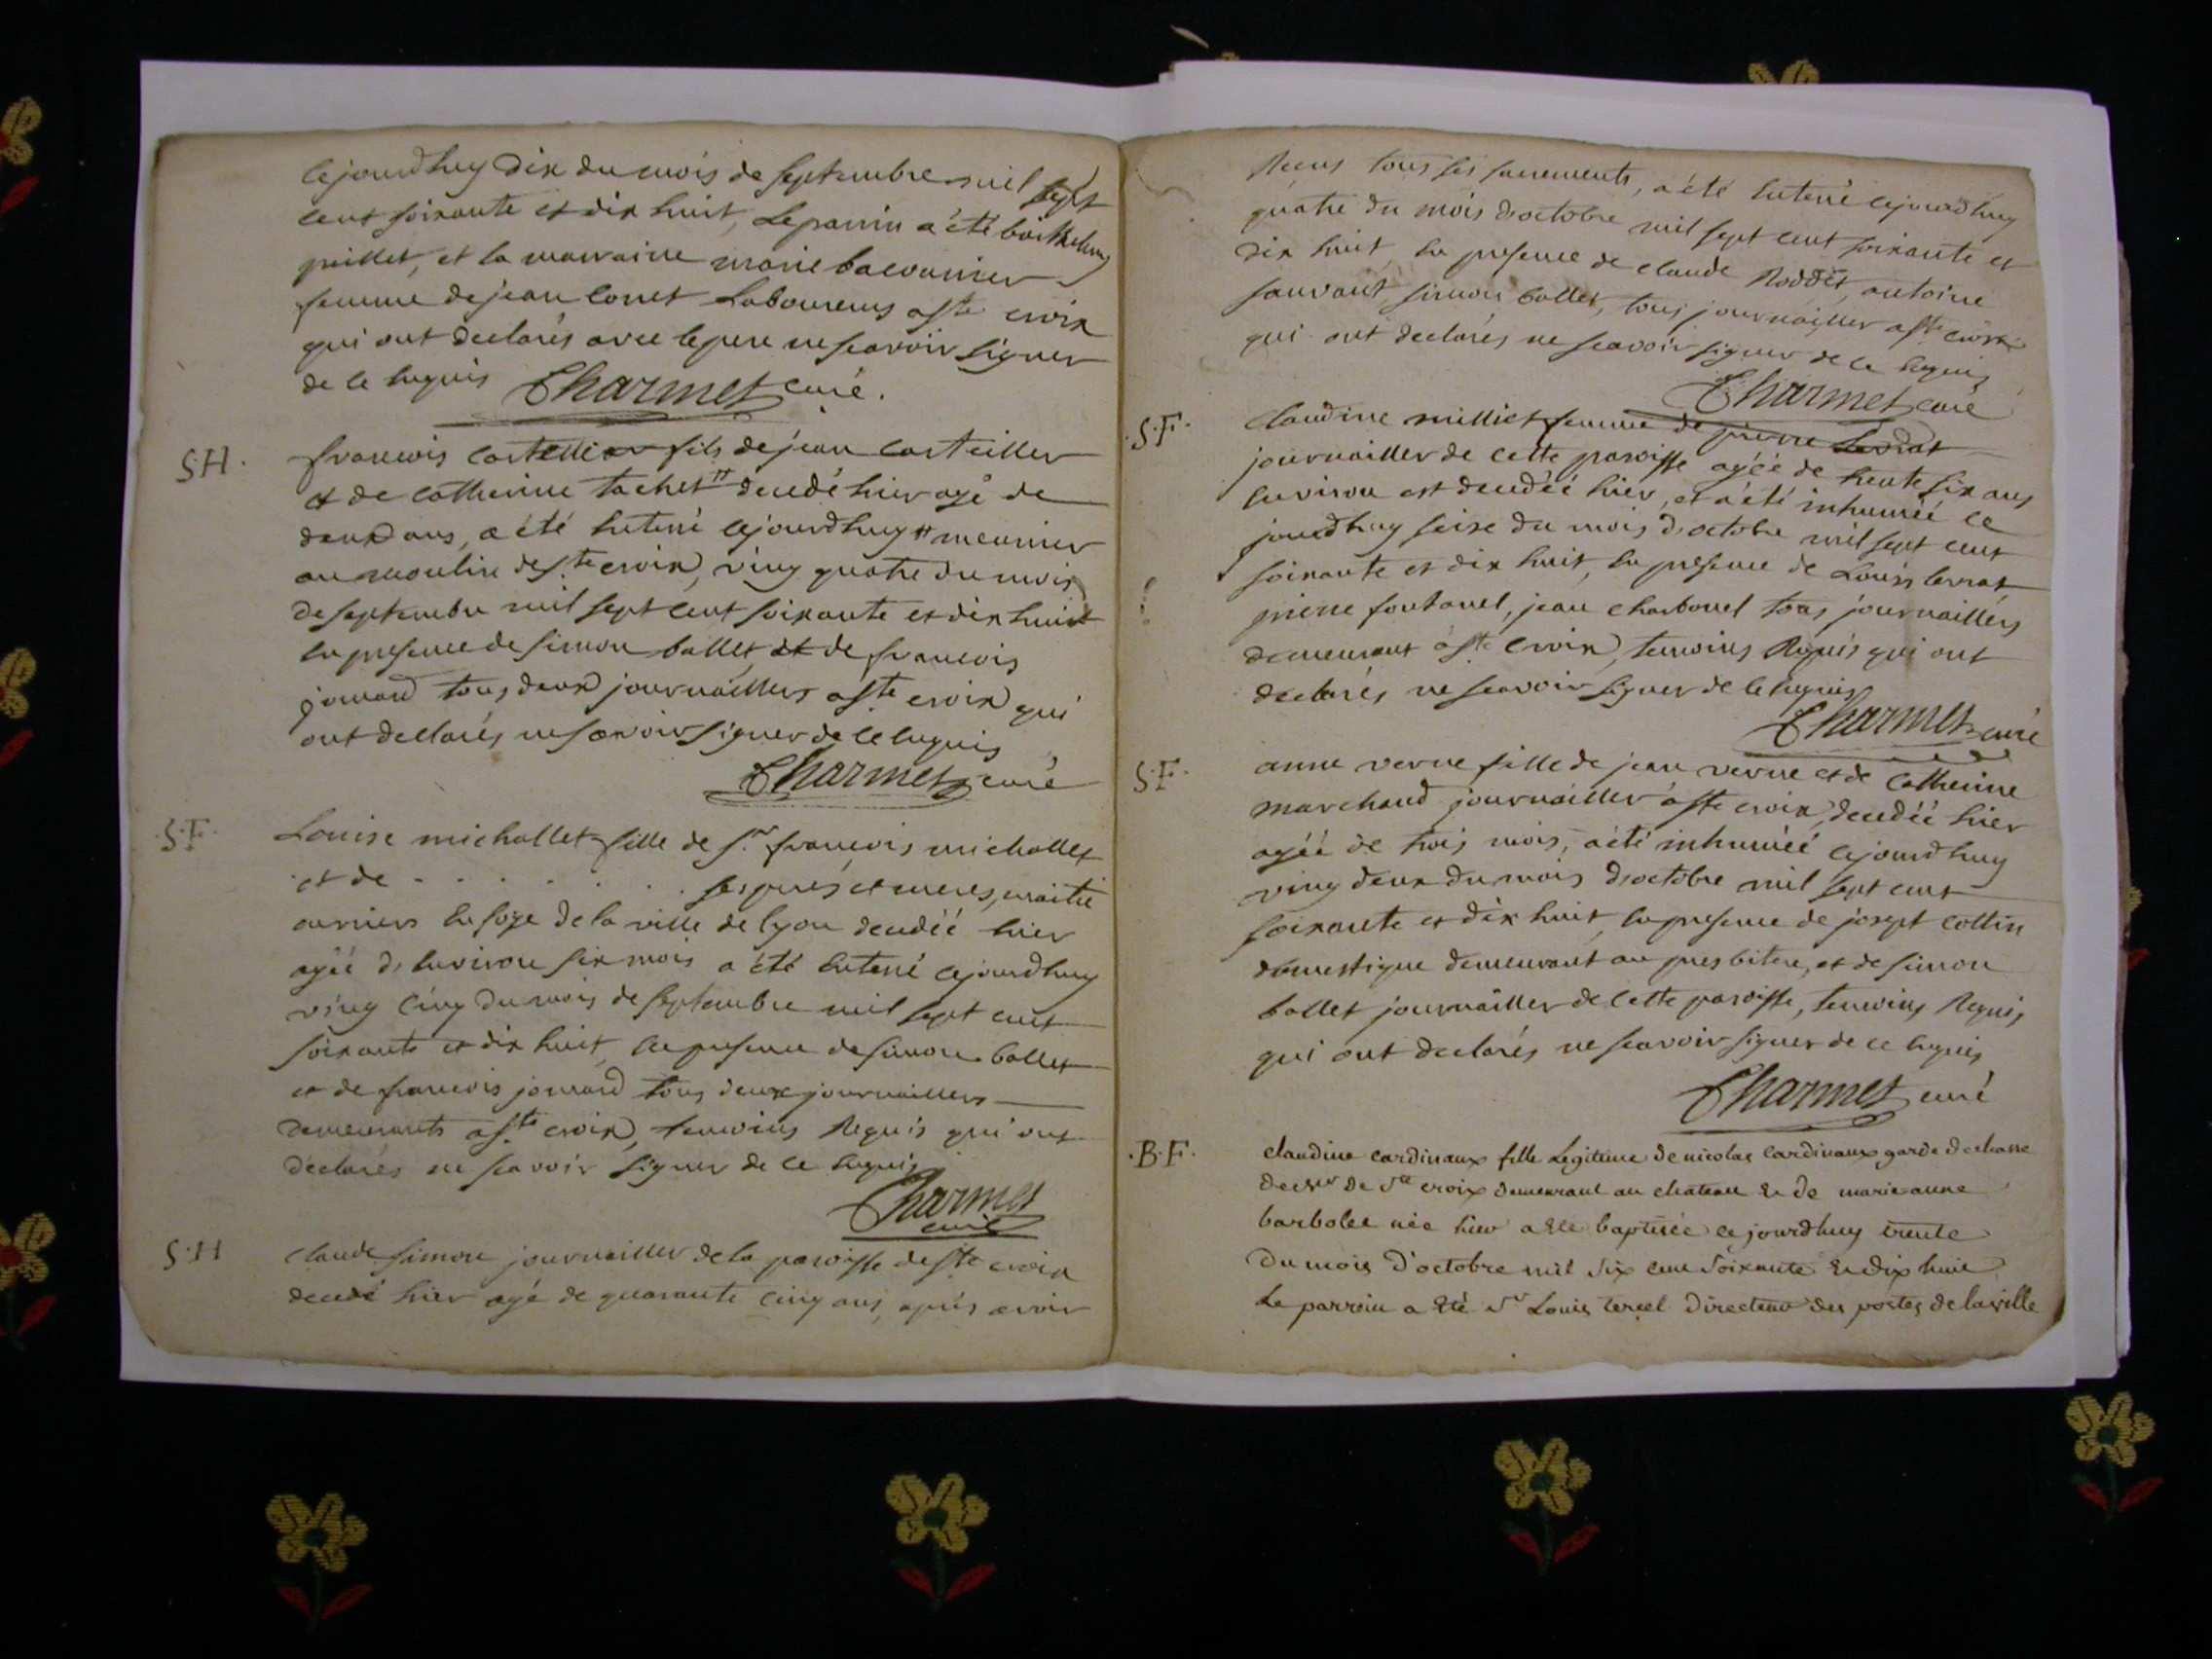 cejourdhuy dix du mois de septembre mil sept
cent soixante et dix huit, Le parrin a été barthelemy
peillet, et la marraine marie baconnier
femme de jean Conet Laboureurs a Ste croix
qui ont declarés avec le pere ne scavoir signer
de ce enquis Charmet curé.
S H. francois Casteiller fils de jean Casteiller
et de Catherine tachet # decedé hier agé de
deux ans, a été enterré cejourdhuy # meunier
au moulin de Ste croix, ving quatre du mois
de septembre mil sept cent soixante et dix huit
en presence de simon ballet et de francois
jomard tous deux journaillers a Ste croix qui
ont declarés ne scavoir signer de ce enquis
Charmet curé
S. F. Louise michallet fille de Sr. francois michallet
et de . . . . . . . ses peres et meres, maitre
ouvriers en soye de la ville de lyon decedéé hier
agéé d'environ six mois a été enterré cejourdhuy
ving cinq du mois de septembre mil sept cent
soixante et dix huit, en presence de simon ballet
et de francois jomard tous deux journaillers
demeurants a Ste croix, temoins Requis qui ont
declarés ne scavoir signer de ce enquis
Charmet
curé
S. H claude simon journailler de la paroisse de Ste croix
decedé hier agé de quarante cinq ans, aprés avoir
Recus tous ses sacrements, a été enterré cejourdhuy
quatre du mois d'octobre mil sept cent soixante et
dix huit, en presence de claude Roddet, antoine
sauvant simon ballet, tous journaillers a Ste croix
qui ont declarés ne scavoir signer de ce enquis
Charmet curé
S. F. Claudine milliet femme de pierre Levrat
journailler de cette paroisse agéé de trente six ans
environ est decedéé hier, et a été inhuméé ce
jourdhuy seize du mois d'octobre mil sept cent
soixante et dix huit, en presence de Louis levrat
pierre fontanel, jean charbonel tous journaillers
demeurant a Ste Croix, temoins Requis qui ont
declarés ne scavoir signer de ce enquis
Charmet curé
S. F. anne verne fille de jean verne et de Catherine
marchand journailler a Ste croix, decedéé hier
agéé de trois mois, a été inhuméé cejourdhuy
ving deux du mois d'octobre mil sept cent
soixante et dix huit, en presence de josept collin
domestique demeurant au presbitere, et de simon
ballet journailler de cette paroisse, temoins Requis
qui ont declarés ne scavoir signer de ce enquis
Charmet curé
. B. F. claudine cardinaux fille Legitime de nicolas cardinaux garde de chasse
de Mr De Ste croix demeurant au chateau Et de marie anne
barbolee née hier a Ete baptisée ce jourdhuy trente
Du mois D'octobre mil six cent Soixante Et dix huit
Le parrein a Eté Sr Louis tercel Directeur des postes de la ville